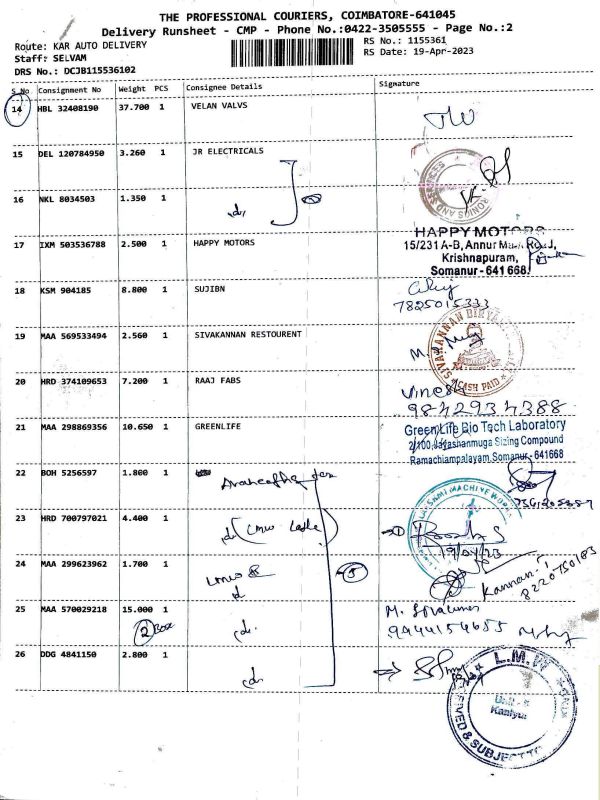 THE PROFESSIONAL COURIERS, COIMBATORE-641045
Delivery Runsheet - CMP - Phone No.:0422-3505555 - Page No.:2
Route: KAR AUTO DELIVERY
RS No.: 1155361
Staff: SELVAM
RS Date: 19-Apr-2023
DRS No.: DCJB115536102
S No Consignment No Weight PCS Consignee Details Signature
14 HBL 32408190 37.700 1 VELAN VALVS
15 DEL 120784950 3.260 1 JR ELECTRICALS
16 NKL 8034503 1.350 1
17 IXM 503536788 2.500 1 HAPPY MOTORS
HAPPY MOTORS
15/231 A-B, Annur Main Road,
Krishnapuram,
Somanur - 641 668
18 KSM 904185 8.800 1 SUJIBN
7825015333
19 MAA 569533494 2.560 1 SIVAKANNAN RESTOURENT
SIVAKANNAN BIRYANI
CASH PAID
20 HRD 374109653 7.200 1 RAAJ FABS
98429 34388
21 MAA 298869356 10.650 1 GREENLIFE
GreenLife Bio Tech Laboratory
2/100, Jayashanmuga Sizing Compound
Ramachiampalayam, Somanur - 641668
22 BOH 5256597 1.800 1
23 HRD 700797021 4.400 1
MACHINE WORKS
19/04/23
24 MAA 299623962 1.700 1
5
Kannan
8220750183
25 MAA 570029218 15.000 1
2 Box
9944154655
26 DDG 4841150 2.800 1
L.M.W
Unit -
Kaniyur
& SUBJECT TO